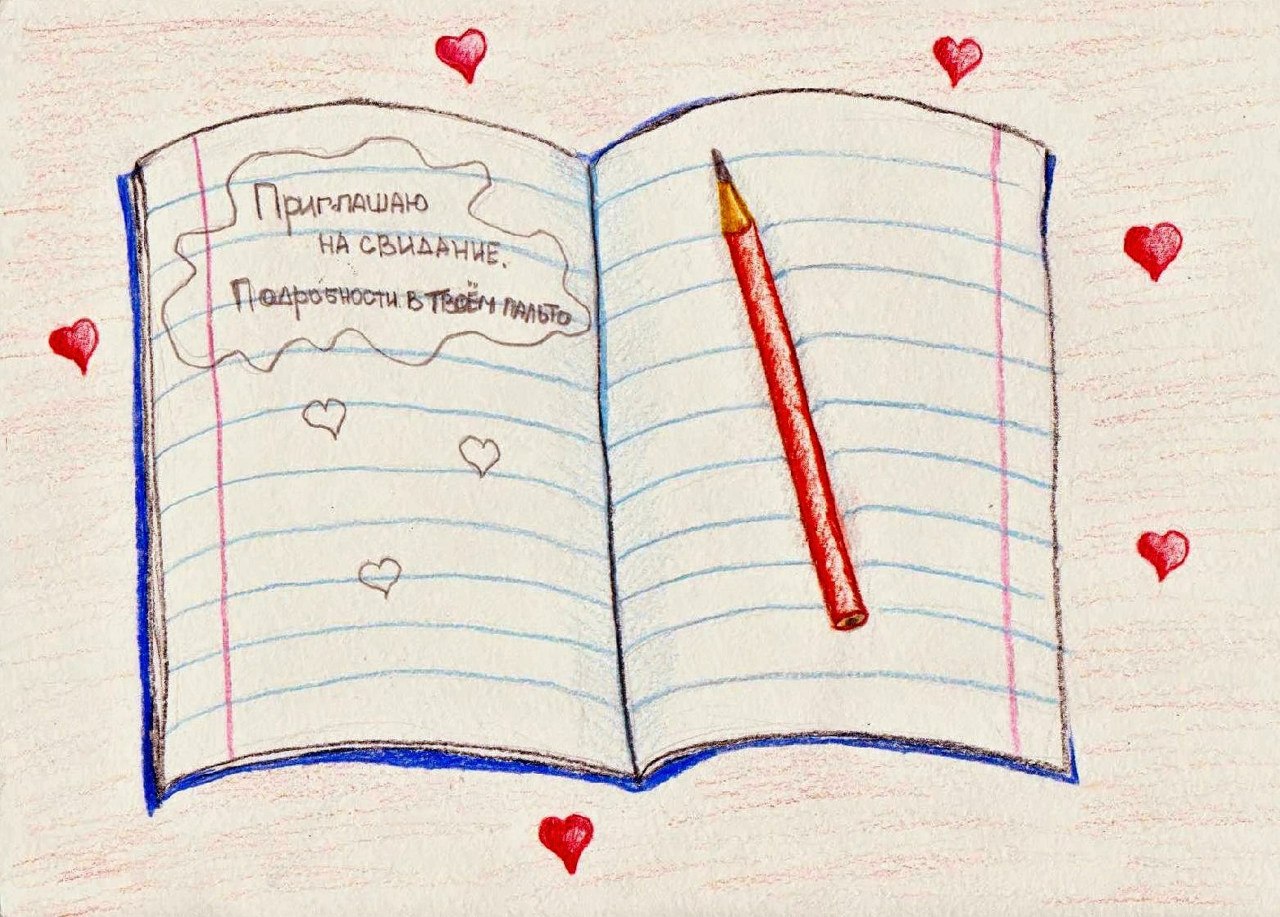 Приглашаю
на свидание.
Подробности в твоём пальто